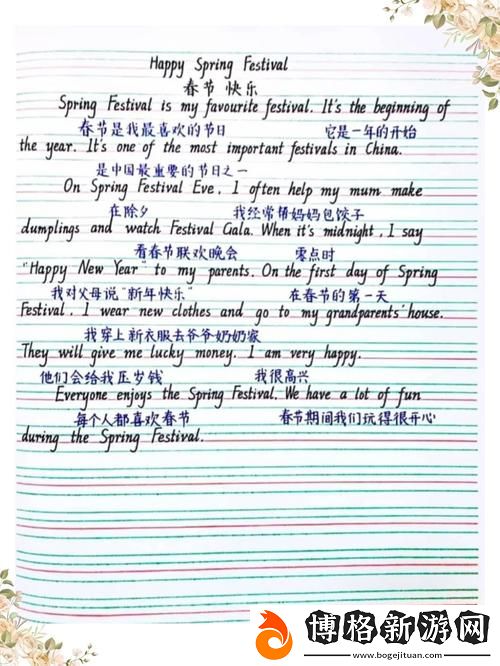 Happy Spring Festival
春节 快乐
Spring Festival is my favourite festival. It's the beginning of
春节是我最喜欢的节日 它是一年的开始
the year. It's one of the most important festivals in China.
是中国最重要的节日之一
On Spring Festival Eve, I often help my mum make
在除夕 我经常帮妈妈包饺子
dumplings and watch Festival Gala. When it's midnight, I say
看春节联欢晚会 零点时
"Happy New Year" to my parents. On the first day of Spring
我对父母说“新年快乐” 在春节的第一天
Festival, I wear new clothes and go to my grandparents' house.
我穿上新衣服去爷爷奶奶家
They will give me lucky money. I am very happy.
他们会给我压岁钱 我很高兴
Everyone enjoys the Spring Festival. We have a lot of fun
每个人都喜欢春节 春节期间我们玩得很开心
during the Spring Festival.
博格新游网
www.bogejituan.com